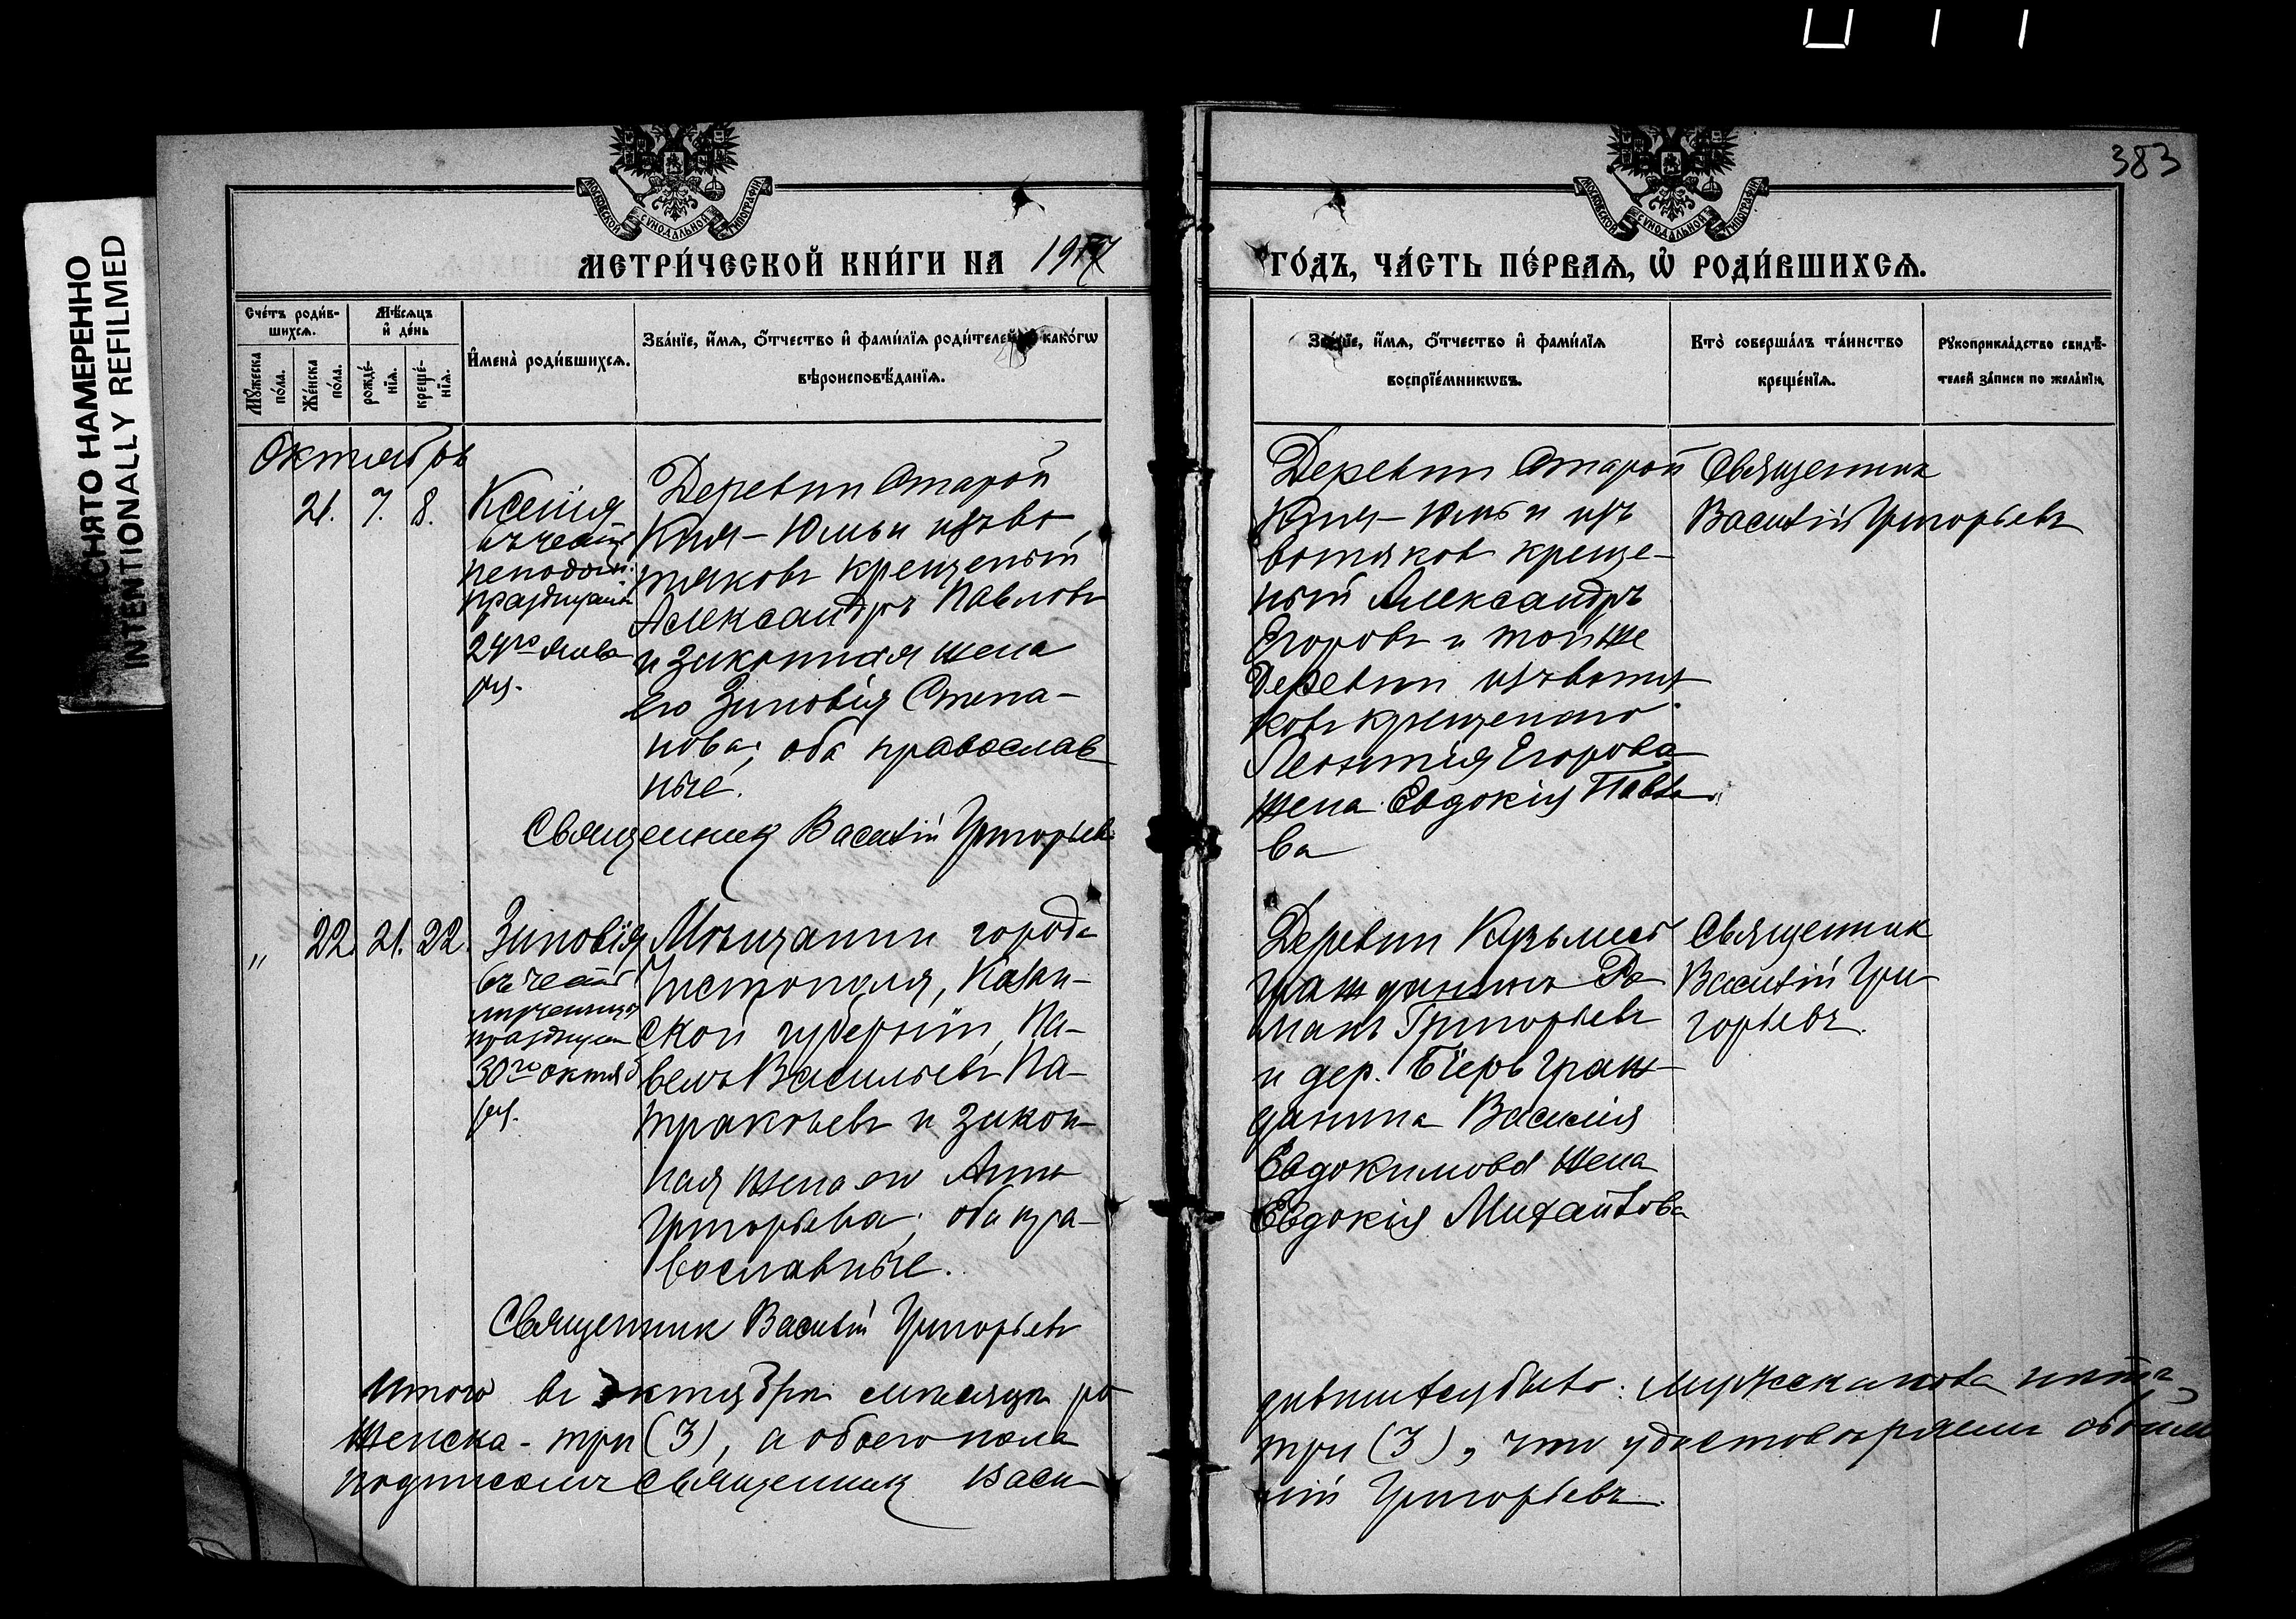 СНЯТО НАМЕРЕННО
INTENTIONALLY REFILMED
383
МОСКОВСКОЙ СѴНОДАЛЬНОЙ ТИПОГРАФІИ
МОСКОВСКОЙ СѴНОДАЛЬНОЙ ТИПОГРАФІИ
МЕТРИ́ЧЕСКОЙ КНИ́ГИ НА 1917 ГО́ДЪ, ЧА́СТЬ ПЕ́РВАѦ, Ѡ҆ РОДИ́ВШИХСѦ.
Сче́тъ роди́в-
шихсѧ.
Мѣ́сѧцъ
и҆ де́нь
Мꙋ́жеска
по́ла.
Же́нска
по́ла.
рожде́-
нїѧ.
креще́-
нїѧ.
И҆мена̀ роди́вшихсѧ.
Зва́нїе, и҆́мѧ, ѻ҆́тчество и҆ фами́лїѧ роди́телей и҆ како́гѡ
вѣроисповѣ́данїѧ.
Зва́нїе, и҆́мѧ, ѻ҆́тчество и҆ фами́лїѧ
воспрїе́мникѡвъ.
Кто̀ соверша́лъ та́инство
креще́нїѧ.
Рꙋкоприкла́дство свидѣ́-
телей за́писи по жела́нїю.
Октябрь
21. 7. 8.
Ксенія
въ честь
преподоб.
празднуемой
24го янва
ря.
Деревни Старой
Кня-Юмьи изъ во
тяковъ крещеный
Александръ Павловъ
и законная жена
его Зиновія Степа-
нова, оба православ
ные.
Священник Василій Григорьевъ
Деревни Старой
Кня-Юмьи изъ
вотяковъ креще-
ный Александръ
Егоровъ и тойже
деревни изъ вотя-
ковъ крещенаго
Леонтія Егорова
жена Евдокія Павло
ва
Священник
Василій Григорьевъ
" 22. 21. 22.
Зиновія
въ честь
мученицы
празднуем
30го октяб
ря.
Мѣщанин города
Чистополя, Казан-
ской губерніи, Па-
велъ Васильевъ Па-
тракѣевъ и закон-
ная жена его Анна
Григорьева; оба пра-
вославные.
Священник Василій Григорьевъ
Деревни Кузьмес
гражданинъ Ро
манъ Григорьевъ
и дер. Бiеръ граж-
данина Василія
Евдокимова жена
Евдокія Михайлова
Священник
Василій Гри
горьевъ.
Итого въ октябрѣ мѣсяцѣ ро
дившихся было: мужска пола нѣтъ,
женска - три (3), а обоего пола
три (3), что удостовѣряемъ своим
подписомъ Священник Васи-
лій Григорьевъ.